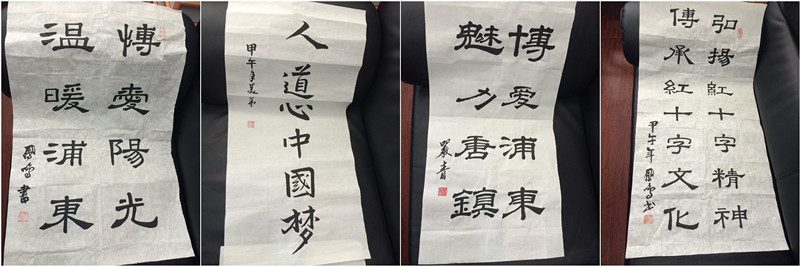 愽愛陽光
温暖浦東
書
人道心中國梦
甲午年
博爱浦東
魅力唐鎮
嚴青
弘揚紅十字精神
傳承紅十字文化
甲午年